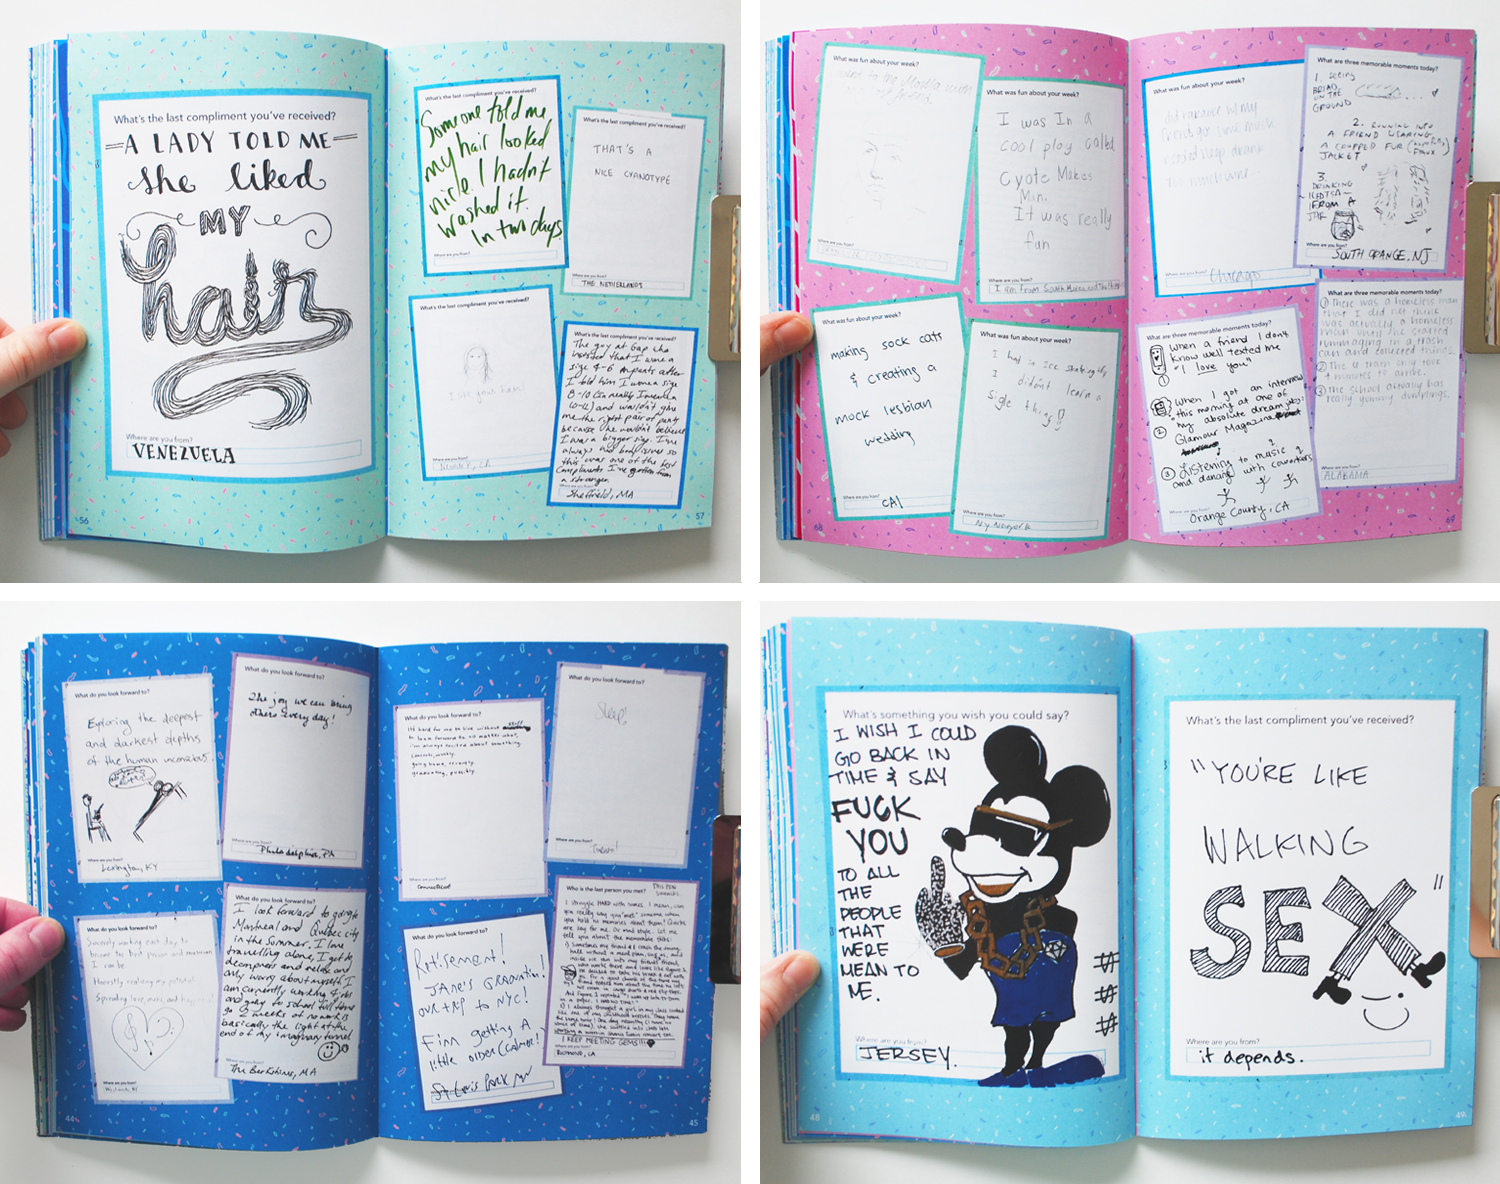 What's the last compliment you've received?
A LADY TOLD ME
she liked
MY
hair
Where are you from?
VENEZUELA
56
What's the last compliment you've received?
Someone told me
my hair looked
nice. I hadn't
washed it
In two days
Where are you from?
What's the last compliment you've received?
THAT'S A
NICE CYANOTYPE
Where are you from?
THE NETHERLANDS
What's the last compliment you've received?
I like your hair!
Where are you from?
What's the last compliment you've received?
The guy at Gap who
insisted that I wore a
size 4-6 in pants after
I told him I wore a size
8-10 (in really I wear a
10-12) and wouldn't give
me the right pair of pants
because he wouldn't believe
I was a bigger size. I've
always had body issues so
this was one of the best
compliments I've gotten from
a stranger.
Where are you from?
Sheffield, MA
57
What was fun about your week?
Where are you from?
What was fun about your week?
I was In a
cool play called
Cyote Makes
Man.
It was really
fun
Where are you from?
I am From South Korea
What was fun about your week?
making sock cats
& creating a
mock lesbian
wedding
Where are you from?
CA
What was fun about your week?
I had in Ice skating
I didnt learn a
sigle thing!!
Where are you from?
68
What was fun about your week?
Where are you from?
Chicago
What are three memorable moments today?
1. SEEING
BREAD
ON THE
GROUND
2. RUNNING INTO
A FRIEND WEARING
A CROPPED FUR (hopefully FAUX)
JACKET
3.
DRINKING
ICED TEA
FROM A
JAR
Where are you from?
SOUTH ORANGE, NJ
What are three memorable moments today?
① when a friend I don't
know well texted me
"I love you"
② When I got an interview
this morning at one of
my absolute dream jobs!
Glamour Magazine
③ Listening to music
and dancing with coworkers
Where are you from?
Orange County, CA
What are three memorable moments today?
① There was a homeless man
that I did not think
was actually a homeless
man until he started
rummaging in a trash
can and collected things.
② The Q train only took
minutes to arrive.
③ The school actually has
really yummy dumplings.
Where are you from?
ALABAMA
69
What do you look forward to?
Exploring the deepest
and darkest depths
of the human unconscious.
Where are you from?
Lexington, KY
What do you look forward to?
The joy we can bring
others every day!
Where are you from?
Philadelphia, PA
What do you look forward to?
Where are you from?
What do you look forward to?
I look forward to going to
Montreal and Quebec city
in the summer. I love
travelling alone, I get to
decompress and relax and
only worry about myself. I
am currently working 2 jobs
and going to school full time
so 2 weeks of no work is
basically the light at the
end of my imaginary tunnel
The Berkshires, MA
44
What do you look forward to?
It'd hard for me to live without
to look forward to. no matter what,
i'm always excited about something.
concrete, weekly.
going home, recently.
graduating, possibly.
Where are you from?
Connecticut
What do you look forward to?
Sleep!
Where are you from?
What do you look forward to?
Retirement!
JANE'S GRADUATION!
OUR TRIP TO NYC!
Finn getting A
little older (calmer!)
Where are you from?
St Louis Park MN
Who is the last person you met?
I struggle HARD with names. I mean, can
you really say you "met" someone when
you hold no memories about them?
I KEEP MEETING GEMS!!!
Where are you from?
RICHMOND, CA
45
What's something you wish you could say?
I WISH I COULD
GO BACK IN
TIME & SAY
FUCK
YOU
TO ALL
THE
PEOPLE
THAT
WERE
MEAN TO
ME.
Where are you from?
JERSEY.
48
What's the last compliment you've received?
"YOU'RE LIKE
WALKING
SEX"
Where are you from?
it depends.
49